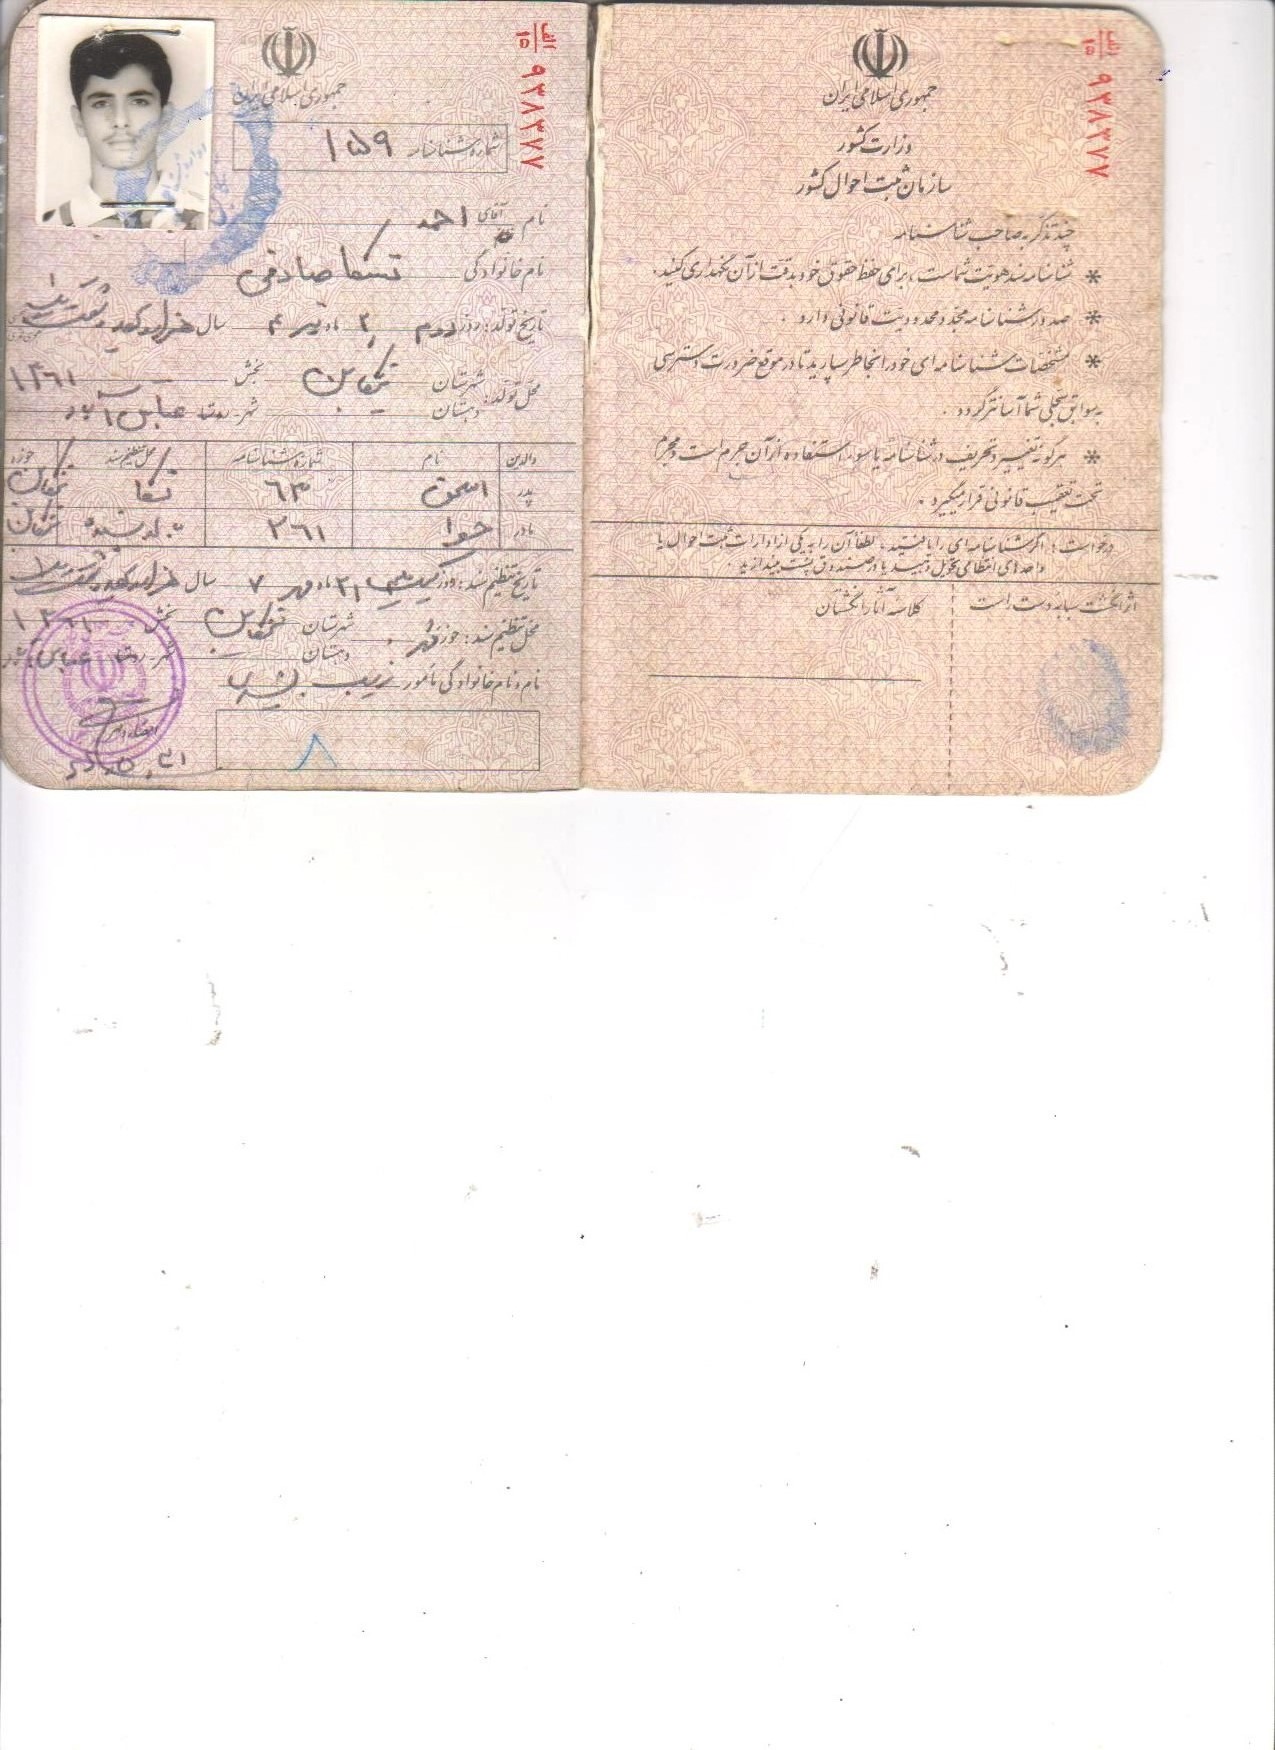 الف
۱۵
۹۳۸۳۷۷
جمهوری اسلامی ایران
وزارت کشور
سازمان ثبت احوال کشور
چند تذکر به صاحب شناسنامه
* شناسنامه سند هویت شماست ، برای حفظ حقوق خود بدقت از آن نگهداری کنید.
* صدور شناسنامه مجدد محدودیت قانونی دارد .
* مشخصات شناسنامه ای خود را بخاطر بسپارید تا در موقع ضرورت دسترسی
به سوابق سجلی شما آسانتر گردد .
* هرگونه تغییر و تحریف در شناسنامه یا سوء استفاده از آن جرم است و مجرم
تحت تعقیب قانونی قرار میگیرد .
درخواست : اگر شناسنامه ای را یافتید ، لطفاً آن را به یکی از ادارات ثبت احوال یا
واحدهای انتظامی تحویل دهید یا در صندوق پست بیندازید .
اثر انگشت سبابه دست است
کلاسه آثار انگشتان
الف
۱۵
۹۳۸۳۷۷
جمهوری اسلامی ایران
شماره شناسنامه ۱۵۹
نام آقای احمد
نام خانوادگی تسکا صادقی
تاریخ تولد : روز دوم ۲ ماه تیر ۴ سال هزار و سیصد و شصت و یک
۱۳۶۱
محل تولد : شهرستان تنکابن بخش
دهستان شهر - روستا عباس آباد
والدین نام شماره شناسنامه محل تنظیم سند حوزه
پدر اسحق ۶۳ تسکا تنکابن
مادر حوا ۲۶۱ تنکابن
تاریخ تنظیم سند : روز ۲۱ ماه مهر ۷ سال هزار و سیصد و شصت و یک
۱۳۶۱
محل تنظیم سند : حوزه شهرستان تنکابن بخش
دهستان شهر - روستا عباس آباد
نام و نام خانوادگی مامور زینب
امضاء و مهر
۸